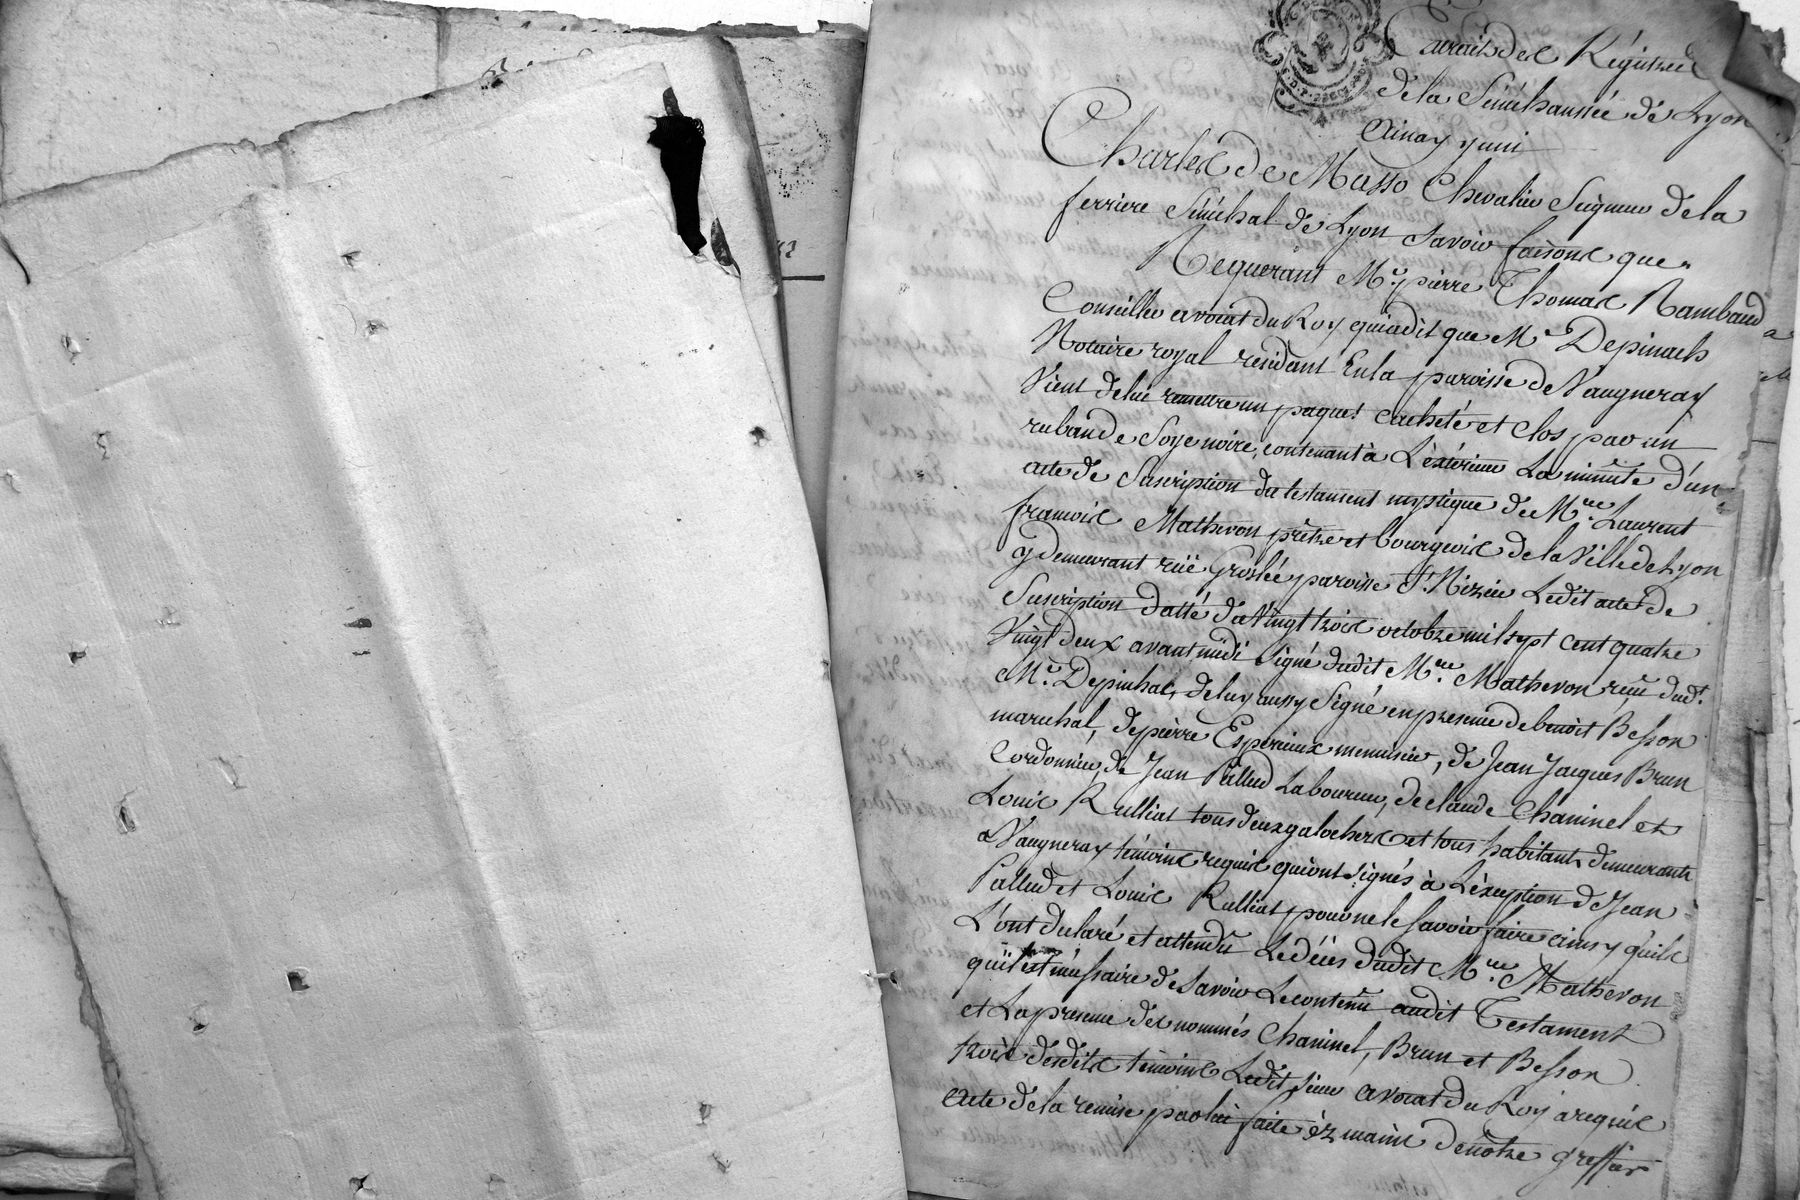 Extrait des Régistres
de la Sénéchaussée de Lyon
Charles de Masso Chevalier Seigneur de la
ferriere Sénéchal de Lyon Savoir faisons que
Requerant Me. pierre Thomas Rambaud
Conseiller avocat du Roy qui a dit que Me Depinach
Notaire royal résidant En la paroisse de Vaugneray
Vient de lui remettre un paquet cacheté et clos par un
ruban de Soye noire, contenant à L'éxtérieur La minutte d'un
acte de Suscription du testament mystique de Mre. Laurent
francois Mathevon prêtre et bourgeois de la Ville de Lyon
y demeurant rüe Groslée paroisse St. Nizier Ledit acte de
Suscription datté du Vingt trois octobre mil sept cent quatre
Vingt deux avant midi Signé dudit Mre. Mathevon reçu dudt.
Me. Depinhac, de luy aussy Signé en presence de benoit Besson
marechal, de pierre Esperieux menuisier, de Jean Jacques Brun
Cordonnier, de Jean Pallud Laboureur, de claude Chaninel et
Louis Rulliat tous deux galochers et tous habitants demeurants
a Vaugneray témoins requis qui ont signés à L'éxception de Jean
Pallud et Louis Rulliat pour ne le savoir faire ainsy qu'ils
L'ont declaré et attendu Le décès dudit Mre. Mathevon
qu'il est nécessaire de Savoir Le contenu audit Testament
et La presence des nommés Chaninel, Brun et Besson
trois desdits témoins Ledit sieur avocat du Roy a requis
acte de la remise par lui faite èz mains de nôtre greffier